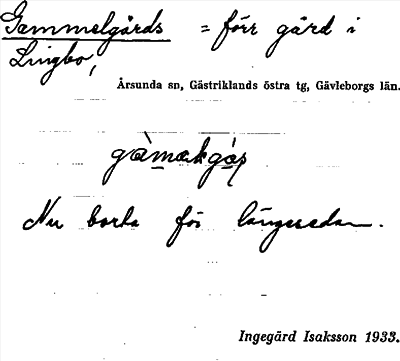 Gammelgårds = förr gård i
Lingbo,
Årsunda sn, Gästriklands östra tg, Gävleborgs län.
Nu borta för längesedan.
Ingegärd Isaksson 1933.